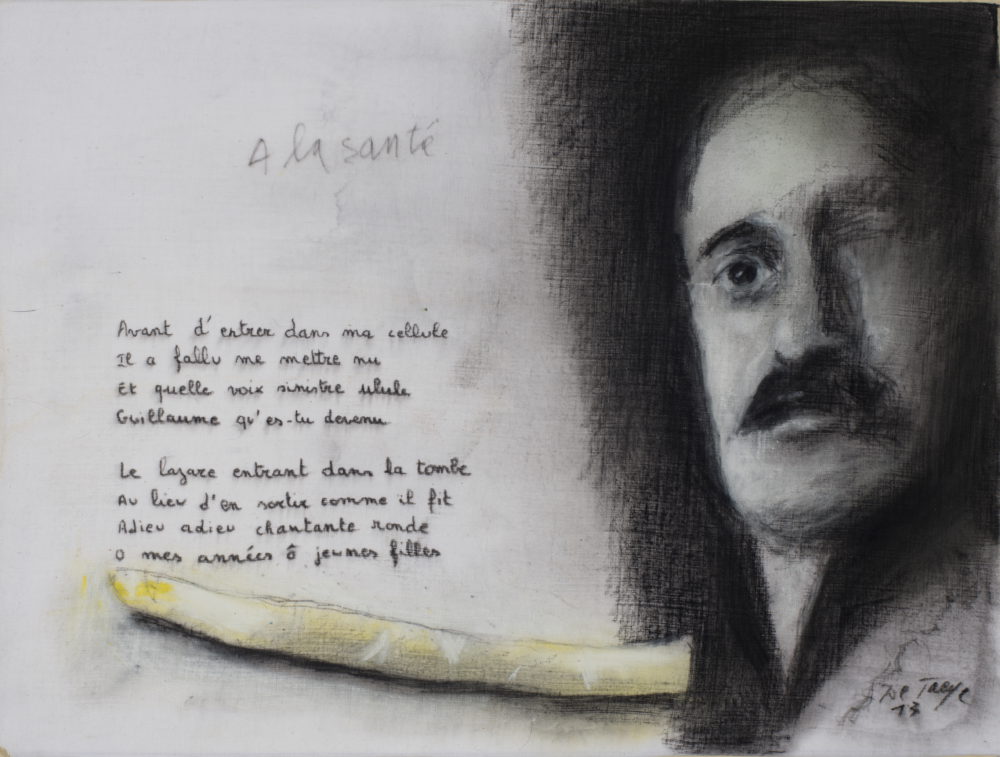 A la santé
Avant d'entrer dans ma cellule
Il a fallu me mettre nu
Et quelle voix sinistre ulule
Guillaume qu'es-tu devenu
Le lazare entrant dans la tombe
Au lieu d'en sortir comme il fit
Adieu adieu chantante ronde
O mes années ô jeunes filles
De Taeye
13